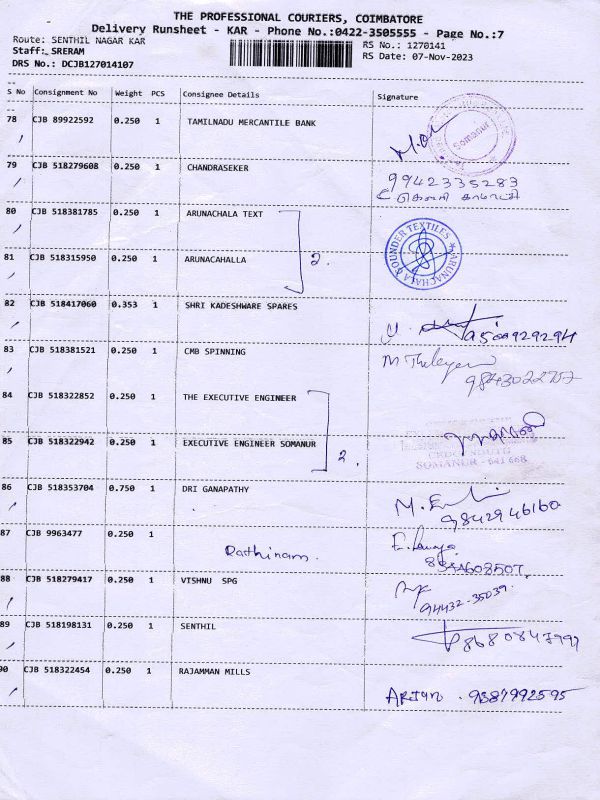 THE PROFESSIONAL COURIERS, COIMBATORE
Delivery Runsheet - KAR - Phone No.:0422-3505555 - Page No.:7
Route: SENTHIL NAGAR KAR
RS No.: 1270141
Staff: SRERAM
RS Date: 07-Nov-2023
DRS No.: DCJB127014107
S No Consignment No Weight PCS Consignee Details Signature
78 CJB 89922592 0.250 1 TAMILNADU MERCANTILE BANK
Somanur
79 CJB 518279608 0.250 1 CHANDRASEKER
9942335283
80 CJB 518381785 0.250 1 ARUNACHALA TEXT
81 CJB 518315950 0.250 1 ARUNACAHALLA
2.
ARUNACHALA GOUNDER TEXTILES
82 CJB 518417060 0.353 1 SHRI KADESHWARE SPARES
83 CJB 518381521 0.250 1 CMB SPINNING
84 CJB 518322852 0.250 1 THE EXECUTIVE ENGINEER
85 CJB 518322942 0.250 1 EXECUTIVE ENGINEER SOMANUR
2.
SOMANUR - 641 668
86 CJB 518353704 0.750 1 DRI GANAPATHY
9842946160
87 CJB 9963477 0.250 1 Rathinam.
88 CJB 518279417 0.250 1 VISHNU SPG
94432-35039.
89 CJB 518198131 0.250 1 SENTHIL
90 CJB 518322454 0.250 1 RAJAMMAN MILLS
ARJUN .